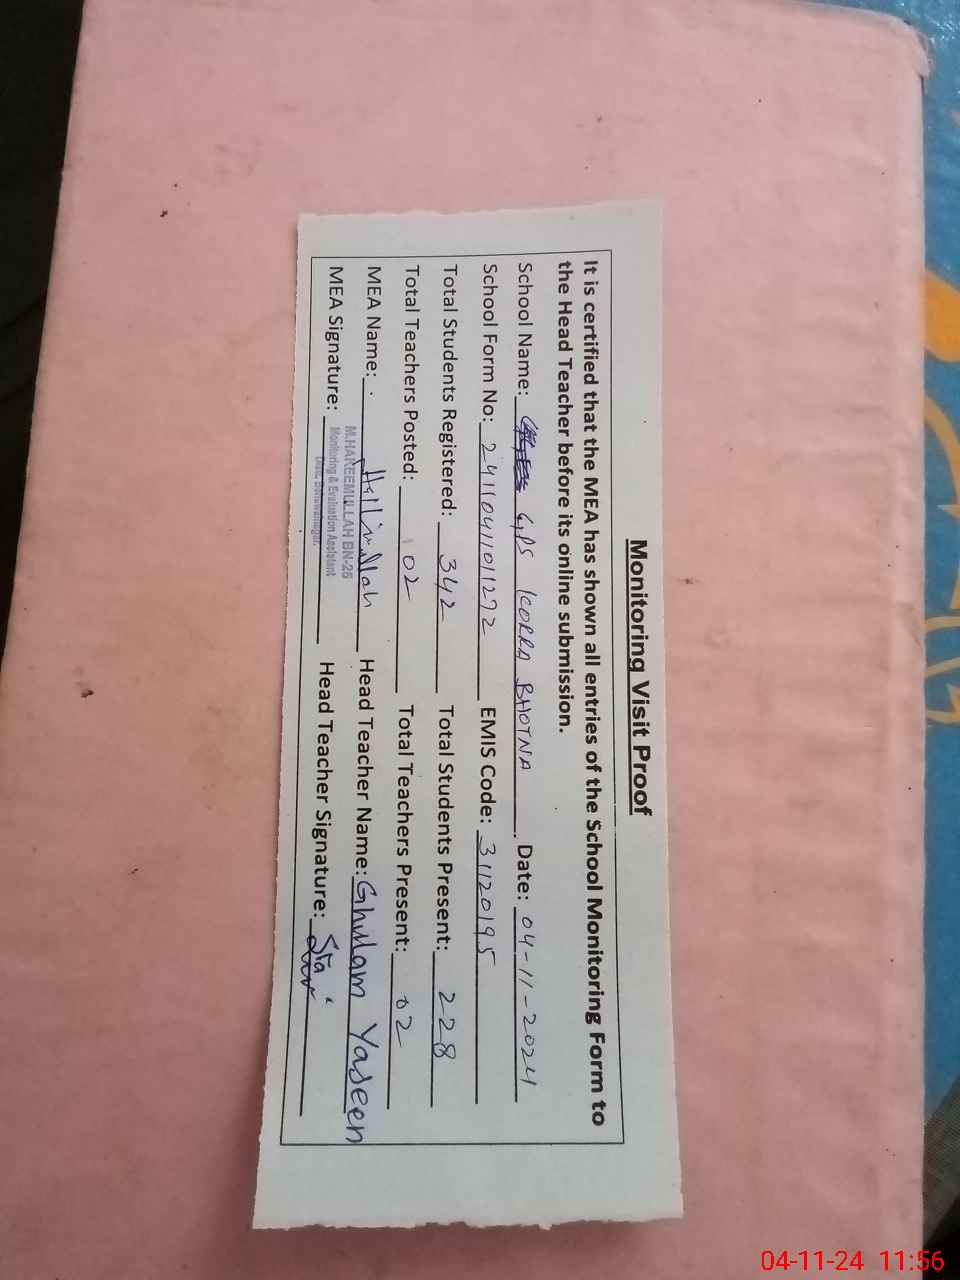 Monitoring Visit Proof
It is certified that the MEA has shown all entries of the School Monitoring Form to
the Head Teacher before its online submission.
School Name: GPS KORRA BHOTNA Date: 04-11-2024
School Form No: 241104110112 EMIS Code: 31120195
Total Students Registered: 342 Total Students Present: 228
Total Teachers Posted: 02 Total Teachers Present: 02
MEA Name: Head Teacher Name: Ghulam Yaseen
M.HAKEEMULLAH BN-25
MEA Signature: Head Teacher Signature:
Monitoring & Evaluation Assistant
Distt. Bahawalnagar.
04-11-24 11:56